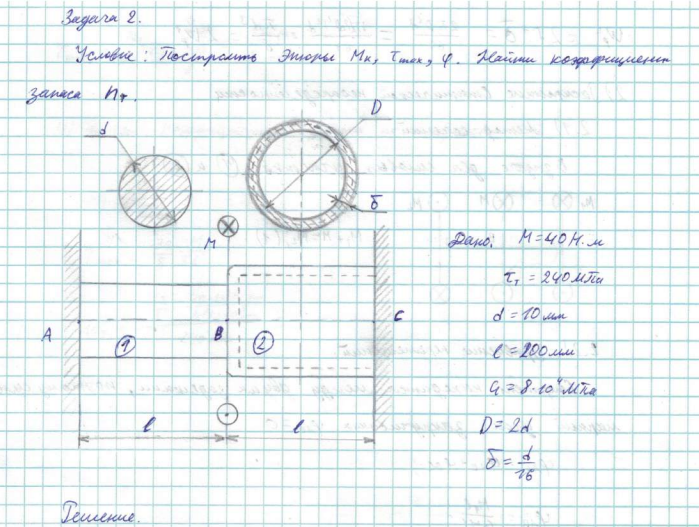 Задача 2.
Условие: Построить Эпюры Mк, τmax, φ. Найти коэффициент
запаса nт.
d
D
δ
M
Дано: M=40 Н·м
τт = 240 МПа
d = 10 мм
A
B
C
1
2
l = 200 мм
G = 8·10⁴ МПа
l
l
D = 2d
δ = d/16
Решение.